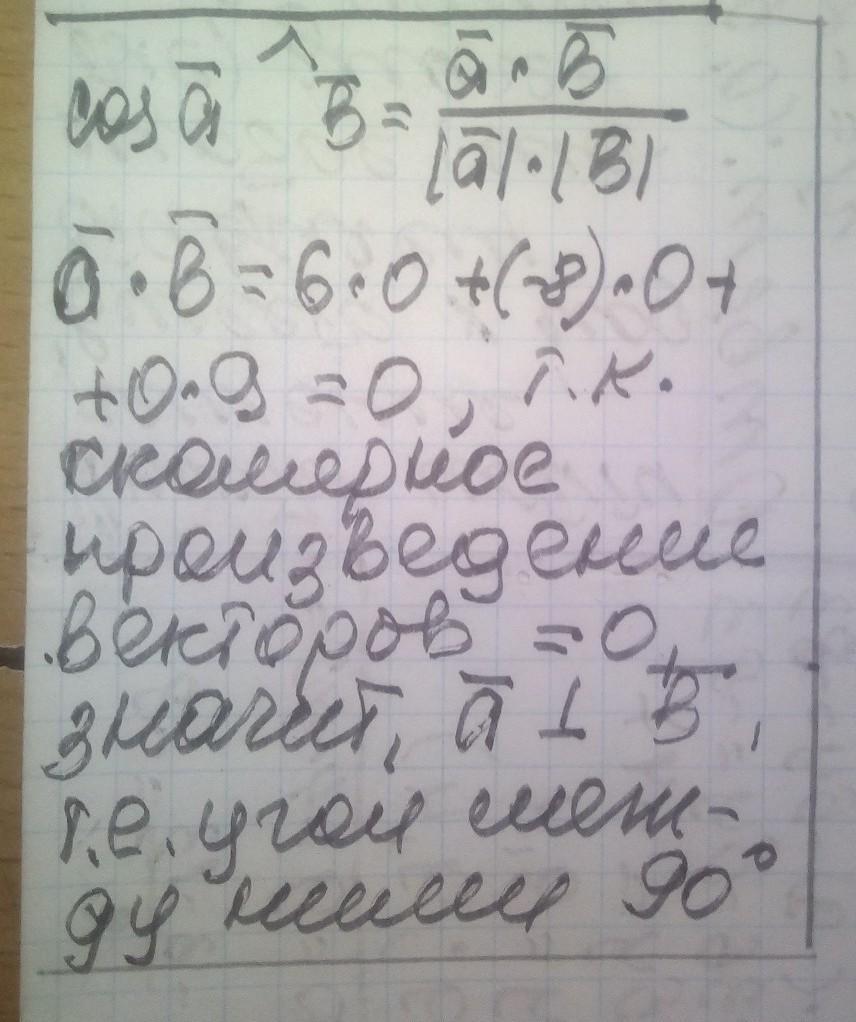 cos ā ^ b̄ = ā · b̄ / |ā| · |b̄|
ā · b̄ = 6 · 0 + (-8) · 0 +
+ 0 · 9 = 0, т.к.
скалярное
произведение
векторов = 0,
значит, ā ⊥ b̄,
т.е. угол меж-
ду ними 90°